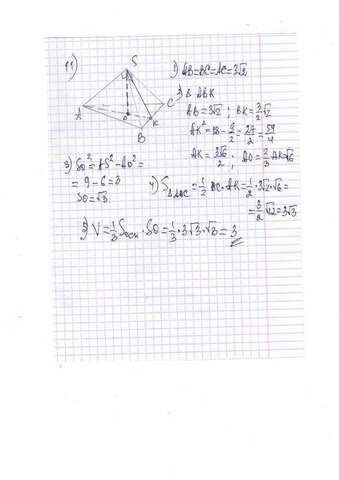 11)
S
A
B
C
K
O
1) AB=BC=AC=3√2
2) Δ ABK
AB=3√2 ; BK=3/2√2
AK²=18-9/2=27/2=54/4
AK=3√6/2 ; AO=2/3AK=√6
3) SO²=AS²-AO²=
=9-6=3
SO=√3.
4) S△ABC=1/2 BC·AK=1/2·3√2·√6=
=3/2√12=3√3
5) V=1/3Sосн·SO=1/3·3√3·√3=3